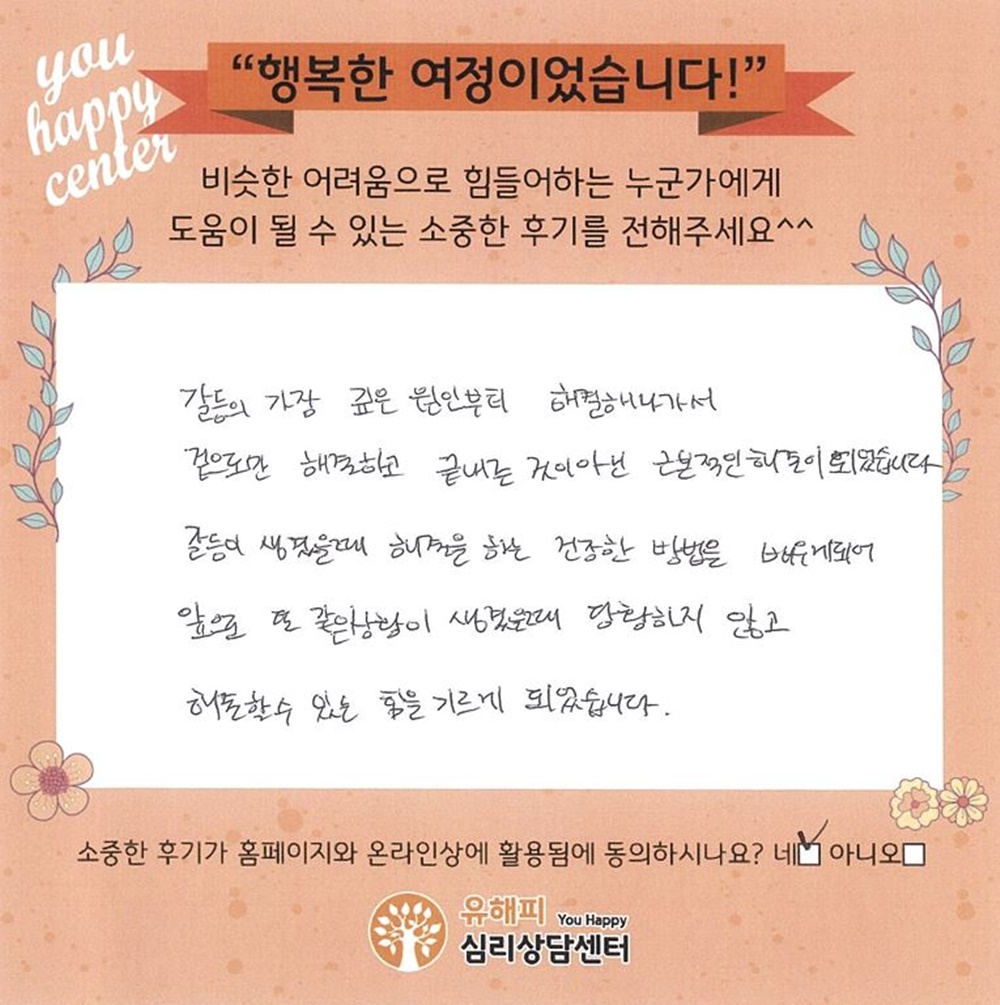 you
happy
center
“행복한 여정이었습니다!”
비슷한 어려움으로 힘들어하는 누군가에게
도움이 될 수 있는 소중한 후기를 전해주세요^^
갈등의 가장 깊은 원인부터 해결해나가서
겉으로만 해결하고 끝내는 것이아닌 근본적인 해결이 되었습니다
갈등이 생겼을때 해결을 하는 건강한 방법을 배우게되어
앞으로 또 같은상황이 생겼을때 당황하지 않고
해결할수 있는 힘을 기르게 되었습니다.
소중한 후기가 홈페이지와 온라인상에 활용됨에 동의하시나요? 네 아니오
유해피 You Happy
심리상담센터